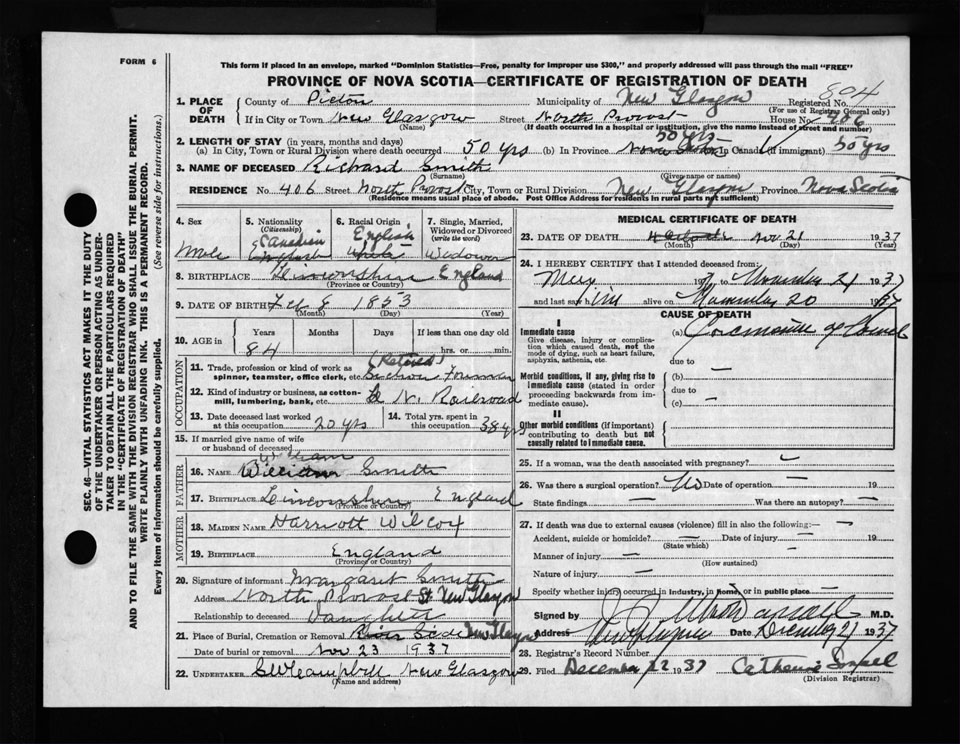 FORM 6
This form if placed in an envelope, marked "Dominion Statistics—Free, penalty for improper use $300," and properly addressed will pass through the mail "FREE"
PROVINCE OF NOVA SCOTIA—CERTIFICATE OF REGISTRATION OF DEATH
804
1. PLACE OF DEATH
County of Pictou Municipality of New Glasgow Registered No.
(For use of Registrar General only)
If in City or Town New Glasgow Street North Provost House No. 406
(Name) (If death occurred in a hospital or institution, give the name instead of street and number)
2. LENGTH OF STAY (in years, months and days) 50 yrs
(a) In City, Town or Rural Division where death occurred 50 yrs (b) In Province Nova Scotia In Canada (if immigrant) 50 yrs
3. NAME OF DECEASED Richard Smith
(Surname) (Given name or names)
RESIDENCE No. 406 Street North Provost City, Town or Rural Division New Glasgow Province Nova Scotia
(Residence means usual place of abode. Post Office Address for residents in rural parts not sufficient)
4. Sex 5. Nationality (Citizenship) 6. Racial Origin 7. Single, Married, Widowed or Divorced (write the word)
Canadian English
Male English White Widower
8. BIRTHPLACE Lincolnshire England
(Province or Country)
9. DATE OF BIRTH Feb 8 1853
(Month) (Day) (Year)
10. AGE in Years Months Days If less than one day old
84 hrs. or min.
OCCUPATION
(Retired)
11. Trade, profession or kind of work as spinner, teamster, office clerk, etc. Section Foreman
12. Kind of industry or business, as cotton-mill, lumbering, bank, etc. C N. Railroad
13. Date deceased last worked at this occupation 20 yrs 14. Total yrs. spent in this occupation 38 yrs
15. If married give name of wife or husband of deceased
William
FATHER
16. NAME William Smith
17. BIRTHPLACE Lincolnshire England
(Province or Country)
MOTHER
18. MAIDEN NAME Harriott Wilcox
19. BIRTHPLACE England
(Province or Country)
20. Signature of informant Margaret Smith
Address North Provost St New Glasgow
Relationship to deceased Daughter
21. Place of Burial, Cremation or Removal River Side New Glasgow
Date of burial or removal Nov 23 1937
22. UNDERTAKER S W Campbell New Glasgow
(Name and address)
MEDICAL CERTIFICATE OF DEATH
23. DATE OF DEATH Nov 21 1937
(Month) (Day) (Year)
24. I HEREBY CERTIFY that I attended deceased from:
19 to November 21 1937
and last saw him alive on November 20 1937
CAUSE OF DEATH
I
Immediate cause (a) Carcinoma of bowel
Give disease, injury or complication which caused death, not the mode of dying, such as heart failure, asphyxia, asthenia, etc.
due to
Morbid conditions, if any, giving rise to immediate cause (stated in order proceeding backwards from immediate cause). (b) —
due to
(c) —
II
Other morbid conditions (if important) contributing to death but not causally related to immediate cause.
25. If a woman, was the death associated with pregnancy?
26. Was there a surgical operation? No Date of operation — 19
State findings — Was there an autopsy? —
27. If death was due to external causes (violence) fill in also the following:— —
Accident, suicide or homicide? — Date of injury — 19
(State which)
Manner of injury —
(How sustained)
Nature of injury —
Specify whether injury occurred in industry, in home, or in public place —
Signed by M.D.
Address Date December 21 1937
28. Registrar's Record Number
29. Filed December 22 1937 Catherine
(Division Registrar)
SEC. 46—VITAL STATISTICS ACT MAKES IT THE DUTY
OF THE UNDERTAKER OR PERSON ACTING AS UNDERTAKER
TO OBTAIN ALL THE PARTICULARS REQUIRED
IN THE "CERTIFICATE OF REGISTRATION OF DEATH"
AND TO FILE THE SAME WITH THE DIVISION REGISTRAR WHO SHALL ISSUE THE BURIAL PERMIT.
WRITE PLAINLY WITH UNFADING INK. THIS IS A PERMANENT RECORD.
Every item of Information should be carefully supplied. (See reverse side for instructions.)